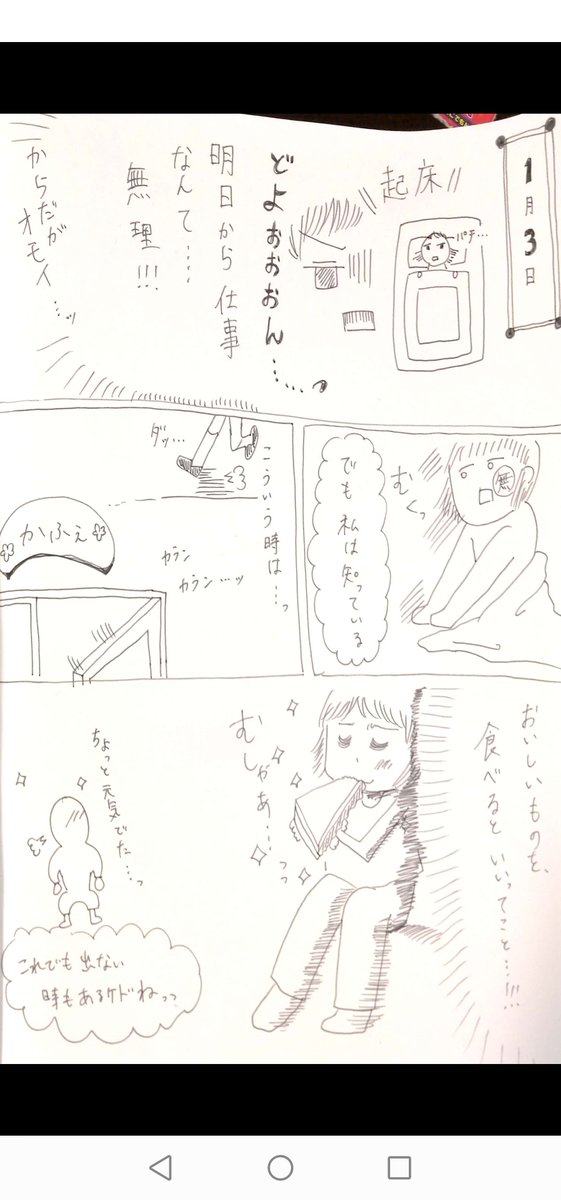 1月3日
起床!!
パチ…
どよぉぉぉおん……。
明日から仕事
なんて……
無理!!!
からだが
オモイ…ッ
無
むくっ
でも私は知っている
こういう時は…っ
ダッ…
かふぇ
カラン
カラン…ッ
おいしいものを、
食べるといいってこと…!!!
むしゃあ…っっ
ちょっと元気でた…っ
これでも出ない
時もあるケドねっっ